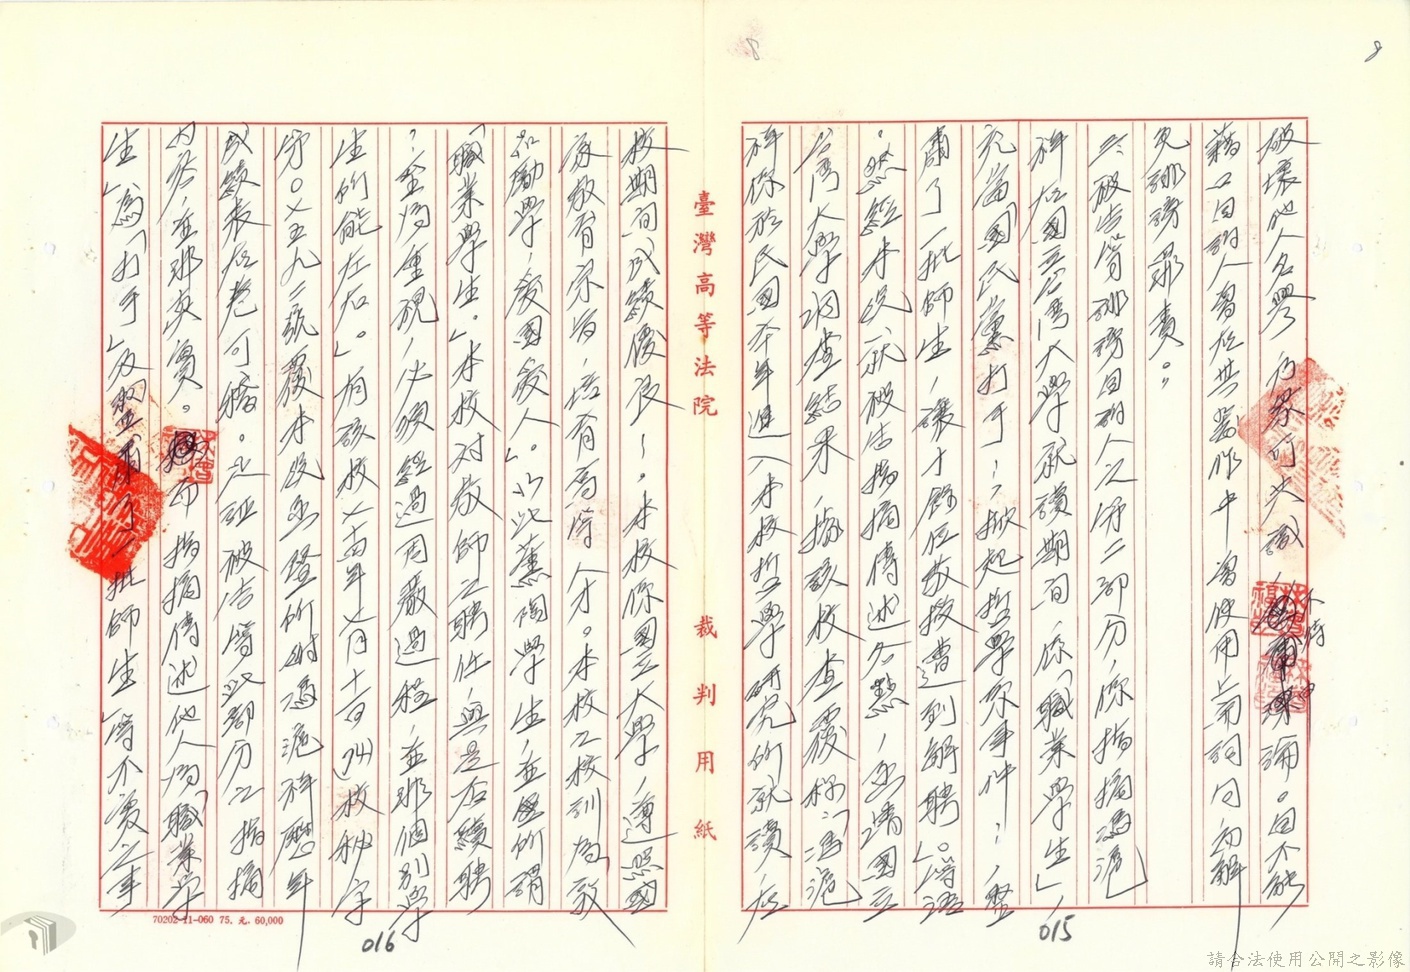 8
8
破壞他人名譽,乃眾所共識,不待
論。自不能
藉口自訴人曾在其著作中曾使用上開詞句而解
免誹謗罪責。
三、被告等誹謗自訴人之第二部分,係指摘馮滬
祥在國立台灣大學就讀期間,係「職業學生」,
充當國民黨打手,掀起哲學系事件,整
肅了一批師生,讓十餘位教授遭到解聘」。等語
。然經本院就被告指摘傳述各點,函請國立
台灣大學調查結果,據該校查覆稱:「馮滬
祥係於民國六十年進入本校哲學研究所就讀,在
校期間成績優良。本校係國立大學,遵照國
家教育宗旨,培育高等人才。本校之校訓為敦
品勵學,愛國愛人。以此薰陶學生,並無所謂
「職業學生。」本校對教師之聘任,與是否續聘
,至為重視,必須經過周嚴過程,並非個別學
生所能左右。」有該校七十四年七月十一日(74)校秘字
第0七五九二號覆本院函暨所附馮滬祥歷年
成績表在卷可稽。足徵被告等此部分之指摘
內容,並非真實。而指摘傳述他人為「職業學
生」為「打手」及「整肅了一批師生」等不實之事
臺灣高等法院 裁判用紙
70202-11-060 75. 元. 60,000
016
015
請合法使用公開之影像